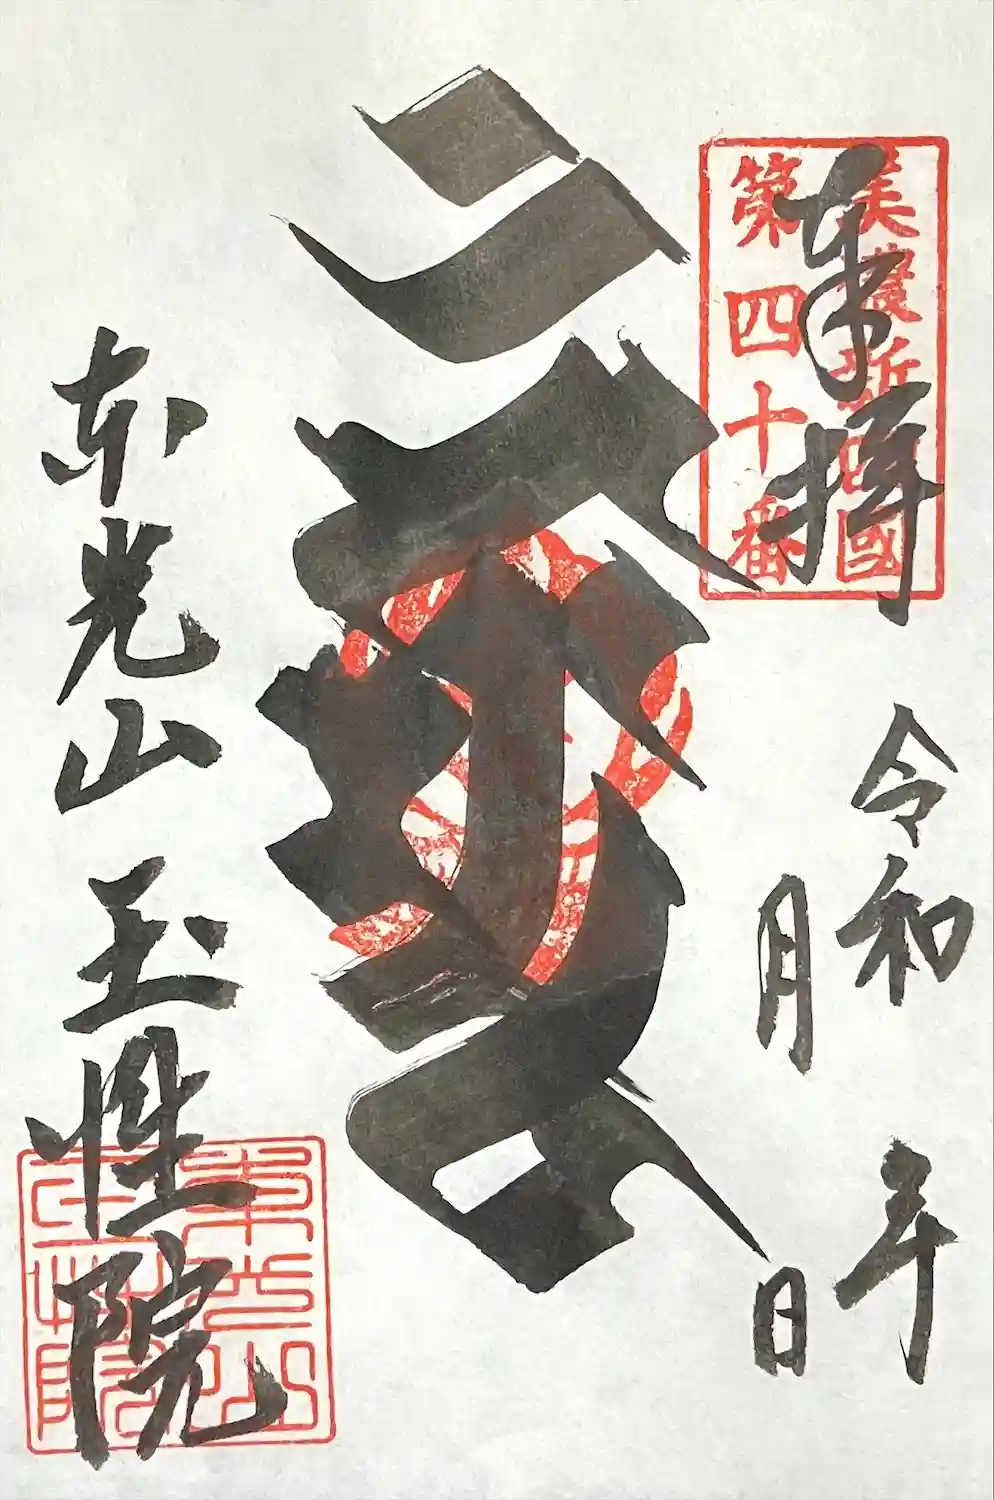 奉拝
美濃新四國
第四十番
令和　年
月　日
東光山 玉性院
東光山
玉性院